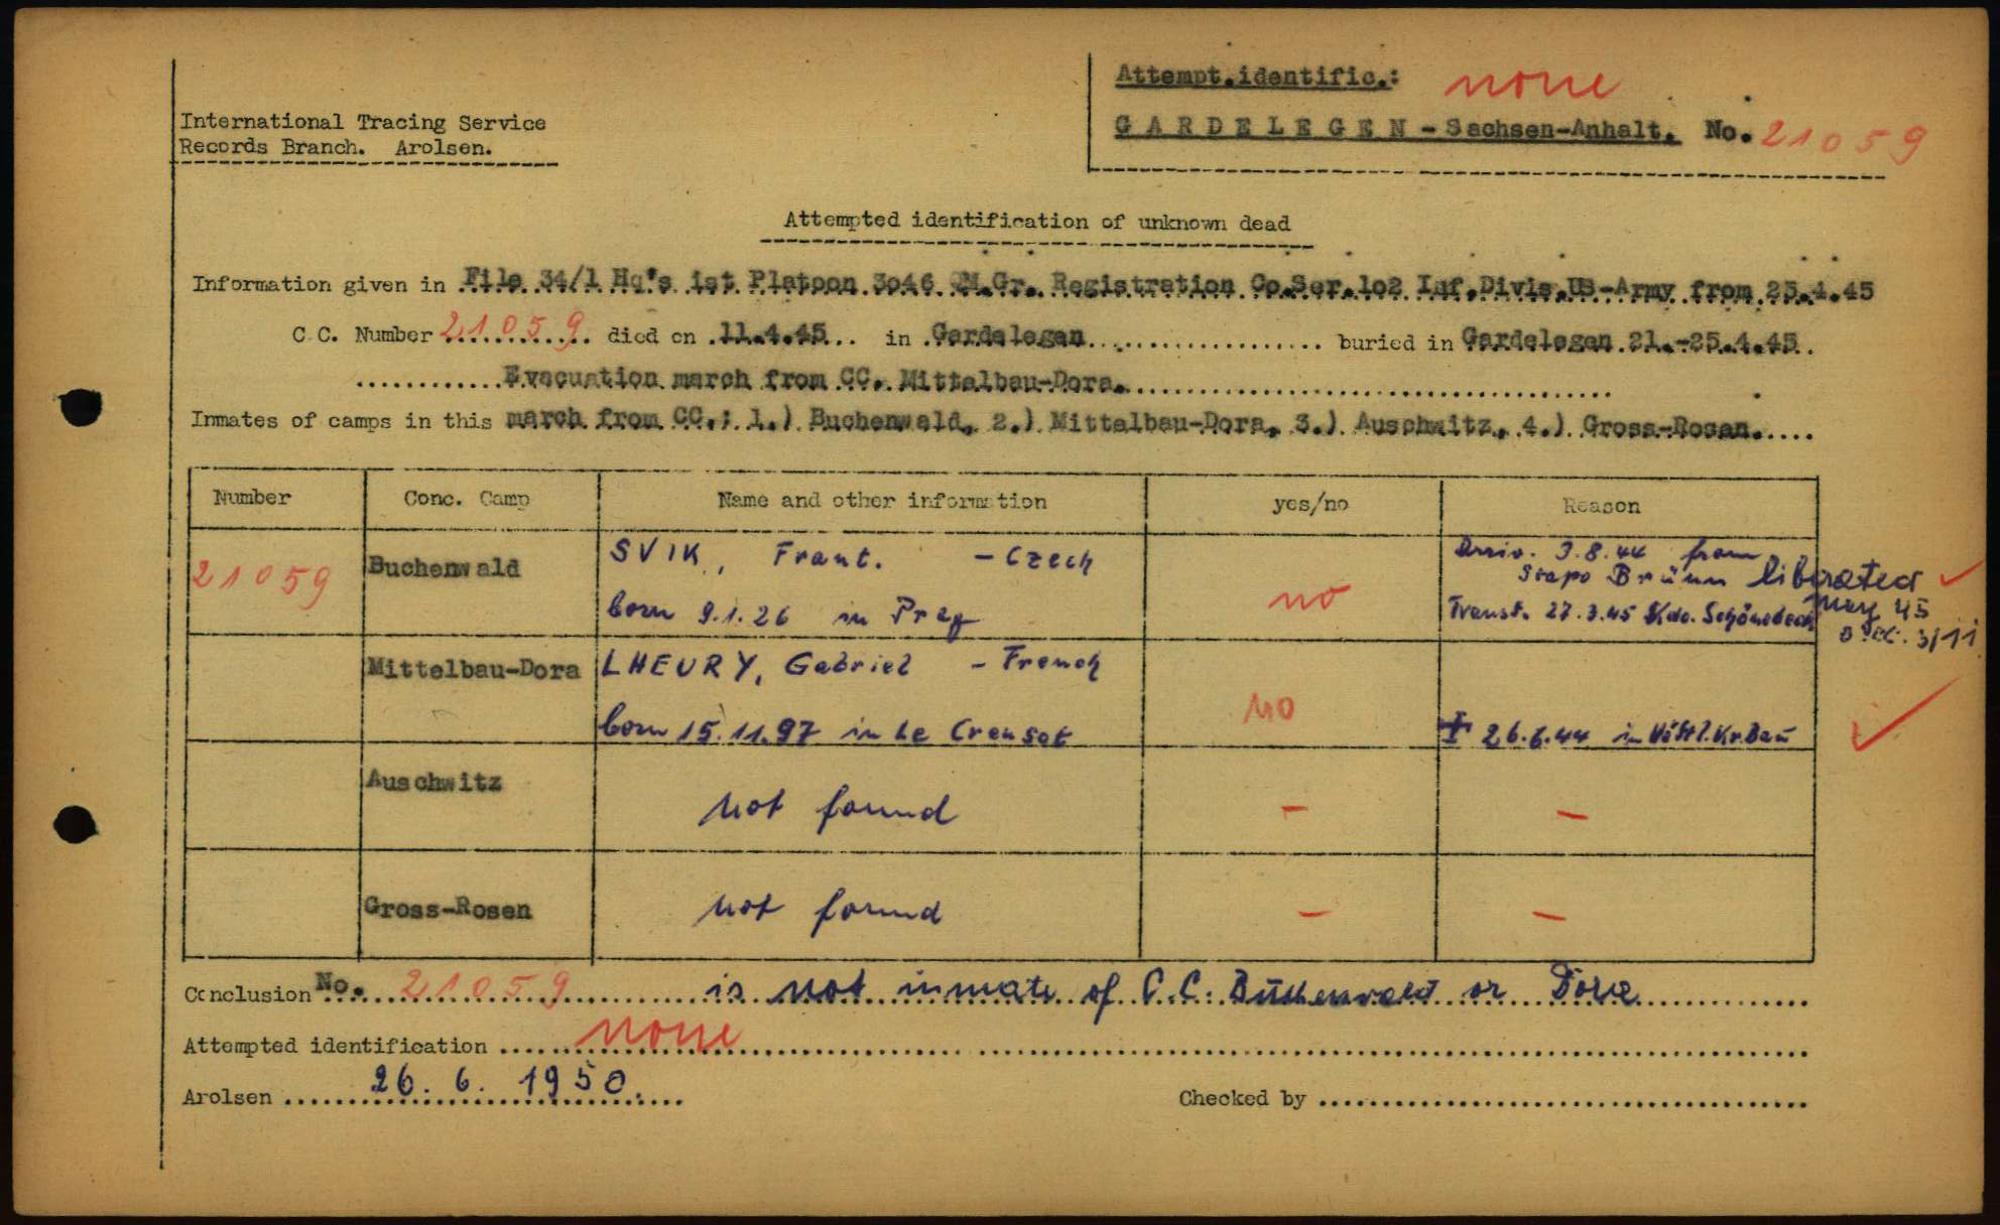 Attempt.identific.: none
International Tracing Service
GARDELEGEN - Sachsen-Anhalt. No. 21059
Records Branch. Arolsen.
Attempted identification of unknown dead
Information given in File 34/1 Hq's 1st Platoon 3o46 QM.Gr. Registration Co.Ser.1o2 Inf.Divis.US-Army from 25.4.45
C.C. Number 21059 died on 11.4.45 in Gardelegen buried in Gardelegen 21.-25.4.45.
Evacuation march from CC. Mittelbau-Dora.
Inmates of camps in this march from CC.: 1.) Buchenwald, 2.) Mittelbau-Dora, 3.) Auschwitz, 4.) Gross-Rosen.
Number Conc. Camp Name and other information yes/no Reason
21059 Buchenwald SVIK, Frant. - Czech no Arriv. 3.8.44 from
Stapo Brünn liberated
born 9.1.26 in Prag Transt. 27.3.45 Kdo. Schönebeck May 45
Mittelbau-Dora LHEURY, Gabriel - French no
born 15.11.97 in Le Creusot 26.6.44 in
Auschwitz not found - -
Gross-Rosen not found - -
Conclusion No. 21059 is not inmate of C.C. Buchenwald or Dora
Attempted identification none
Arolsen 26. 6. 1950. Checked by